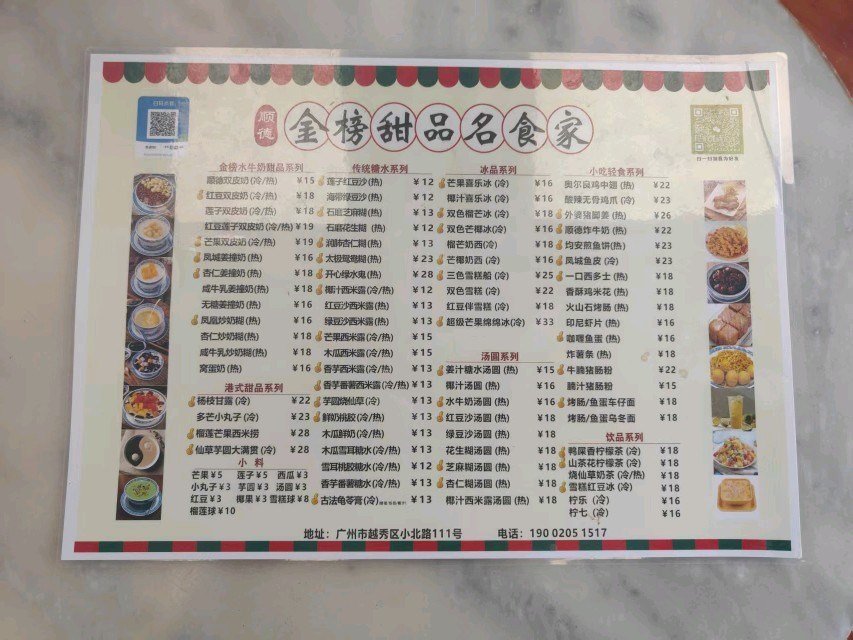 顺德
金榜甜品名食家
金榜水牛奶甜品系列
顺德双皮奶(冷/热) ¥15
红豆双皮奶(冷/热) ¥18
莲子双皮奶(冷/热) ¥18
红豆莲子双皮奶(冷/热) ¥19
芒果双皮奶(冷/热) ¥19
凤城姜撞奶(热) ¥16
杏仁姜撞奶(热) ¥18
咸牛乳姜撞奶(热) ¥18
无糖姜撞奶(热) ¥16
凤凰炒奶糊(热) ¥16
杏仁炒奶糊(热) ¥18
咸牛乳炒奶糊(热) ¥18
窝蛋奶(热) ¥16
港式甜品系列
杨枝甘露(冷) ¥22
多芒小丸子(冷) ¥23
榴莲芒果西米捞 ¥28
仙草芋圆大满贯(冷) ¥28
小料
芒果¥5 莲子¥5 西瓜¥3
小丸子¥3 芋圆¥3 汤圆¥3
红豆¥3 椰果¥3 雪糕球¥8
榴莲球¥10
传统糖水系列
莲子红豆沙(热) ¥12
海带绿豆沙(热) ¥12
石磨芝麻糊(热) ¥13
石磨花生糊(热) ¥12
润肺杏仁糊(热) ¥13
太极鸳鸯糊(热) ¥23
开心绿水鬼(热) ¥28
椰汁西米露(冷/热) ¥12
红豆沙西米露(热) ¥13
绿豆沙西米露(热) ¥13
芒果西米露(热) ¥15
木瓜西米露(冷/热) ¥15
香芋西米露(冷/热) ¥13
香芋番薯西米露(冷/热) ¥13
芋圆烧仙草(冷)
鲜奶桃胶(冷/热)
木瓜鲜奶(冷/热) ¥13
木瓜雪耳糖水(冷/热) ¥13
雪耳桃胶糖水(冷/热) ¥12
香芋番薯糖水(冷/热) ¥13
古法龟苓膏(冷) ¥13
冰品系列
芒果喜乐冰(冷) ¥16
椰汁喜乐冰(冷) ¥16
双色榴芒冰(冷) ¥18
双色芒椰冰(冷) ¥16
榴芒奶西(冷) ¥18
芒椰奶西(冷) ¥16
三色雪糕船(冷) ¥25
双色雪糕(冷) ¥22
红豆伴雪糕(冷) ¥18
超级芒果绵绵冰(冷) ¥33
汤圆系列
姜汁糖水汤圆(热) ¥15
椰汁汤圆(热) ¥16
水牛奶汤圆(热) ¥16
红豆沙汤圆(热) ¥18
绿豆沙汤圆(热) ¥18
花生糊汤圆(热) ¥18
芝麻糊汤圆(热) ¥18
杏仁糊汤圆(热) ¥18
椰汁西米露汤圆(热) ¥18
小吃轻食系列
奥尔良鸡中翅(热) ¥22
酸辣无骨鸡爪(冷) ¥23
外资猪脚姜(热) ¥26
顺德炸牛奶(热) ¥22
均安煎鱼饼(热) ¥23
凤城鱼皮(冷) ¥23
一口西多士(热) ¥18
香酥鸡米花(热) ¥18
火山石烤肠(热) ¥18
印尼虾片(热) ¥16
咖喱鱼蛋(热) ¥16
炸薯条(热) ¥18
牛腩猪肠粉 ¥22
腩汁猪肠粉 ¥15
烤肠/鱼蛋车仔面 ¥18
烤肠/鱼蛋乌冬面 ¥18
饮品系列
鸭屎香柠檬茶(冷) ¥18
山茶花柠檬茶(冷) ¥18
烧仙草奶茶(冷/热) ¥18
雪糕红豆冰(冷) ¥18
柠乐(冷) ¥16
柠七(冷) ¥16
地址：广州市越秀区小北路111号 电话：190 0205 1517